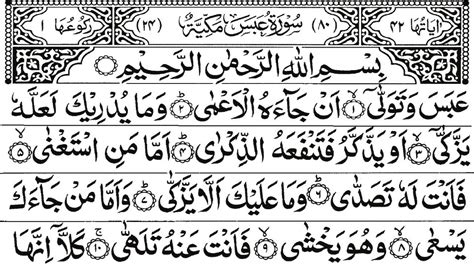 اٰيَاتُهَا ٤٢ (٨٠) سُوْرَةُ عَبَسَ مَكِّيَّةٌ (٢٤) رُكُوْعُهَا ١
بِسْمِ اللّٰهِ الرَّحْمٰنِ الرَّحِيْمِ
عَبَسَ وَتَوَلّٰىۤ ۙ﴿١﴾ اَنْ جَآءَهُ الْاَعْمٰى ؕ﴿٢﴾ وَمَا يُدْرِيْكَ لَعَلَّهٗ
يَزَّكّٰىۤ ۙ﴿٣﴾ اَوْ يَذَّكَّرُ فَتَنْفَعَهُ الذِّكْرٰى ؕ﴿٤﴾ اَمَّا مَنِ اسْتَغْنٰى ۙ﴿٥﴾
فَاَنْتَ لَهٗ تَصَدّٰى ؕ﴿٦﴾ وَمَا عَلَيْكَ اَلَّا يَزَّكّٰى ؕ﴿٧﴾ وَاَمَّا مَنْ جَآءَكَ
يَسْعٰى ۙ﴿٨﴾ وَهُوَ يَخْشٰى ۙ﴿٩﴾ فَاَنْتَ عَنْهُ تَلَهّٰى ۚ﴿١٠﴾ كَلَّاۤ اِنَّهَا